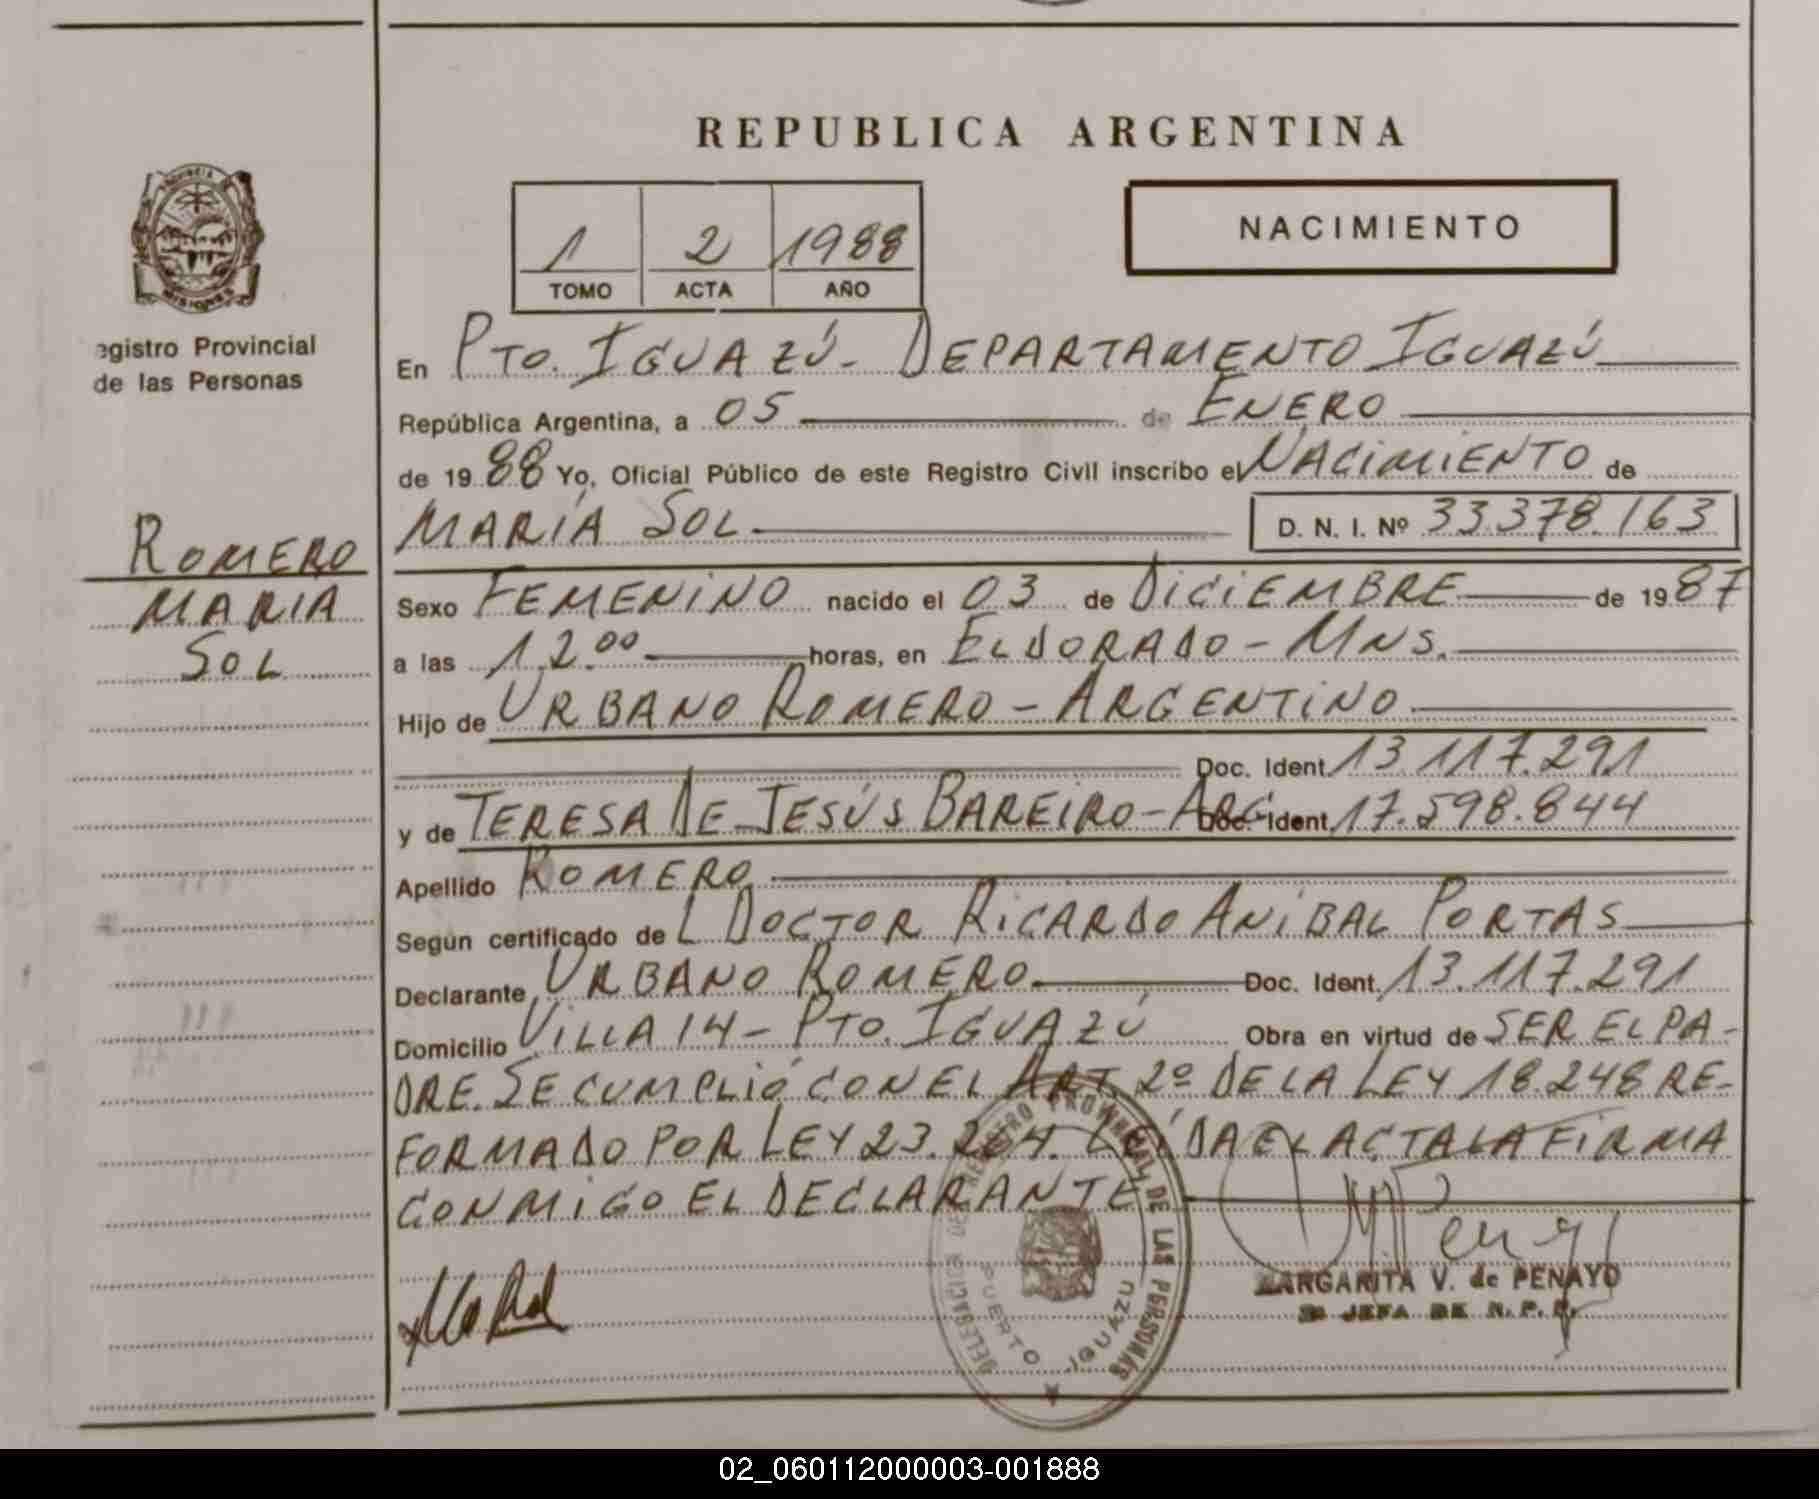 REPUBLICA ARGENTINA
PROVINCIA DE
MISIONES
egistro Provincial
de las Personas
ROMERO
MARIA
SOL
1 2 1988
TOMO ACTA AÑO
NACIMIENTO
En PTO. IGUAZÚ - DEPARTAMENTO IGUAZÚ
República Argentina, a 05 de ENERO
de 19 88 Yo, Oficial Público de este Registro Civil inscribo el NACIMIENTO de
MARÍA SOL D. N. I. Nº 33.378.163
Sexo FEMENINO nacido el 03 de DICIEMBRE de 19 87
a las 12.00 horas, en ELDORADO - MNS.
Hijo de URBANO ROMERO - ARGENTINO
Doc. Ident. 13.117.291
y de TERESA DE JESÚS BAREIRO - ARG. Doc. Ident. 17.598.844
Apellido ROMERO
Según certificado de L DOCTOR RICARDO ANÍBAL PORTAS
Declarante URBANO ROMERO Doc. Ident. 13.117.291
Domicilio VILLA 14 - PTO. IGUAZÚ Obra en virtud de SER EL PA-
DRE. SE CUMPLIÓ CON EL ART. 2º DE LA LEY 18.248 RE-
FORMADO POR LEY 23.264. LEÍDA EL ACTA LA FIRMA
CONMIGO EL DECLARANTE
DELEGACION DEL REGISTRO PROVINCIAL DE LAS PERSONAS
PUERTO IGUAZU
MARGARITA V. de PENAYO
JEFA DE R. P. P.
02_060112000003-001888